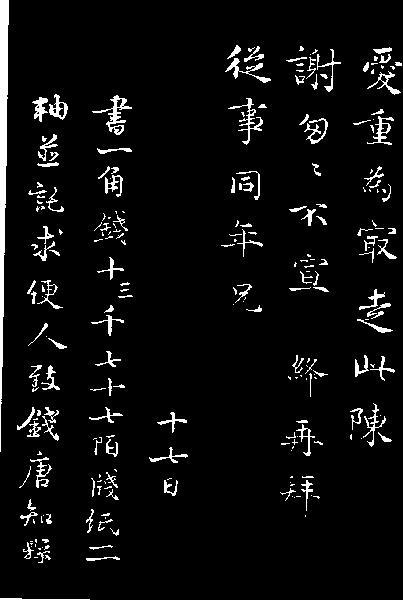 愛重為寂走此陳
謝匆〻不宣　絳再拜
從事同年兄
十七日
書一角錢十三千七十七陌牋紙二
軸並託求便人致錢唐知縣